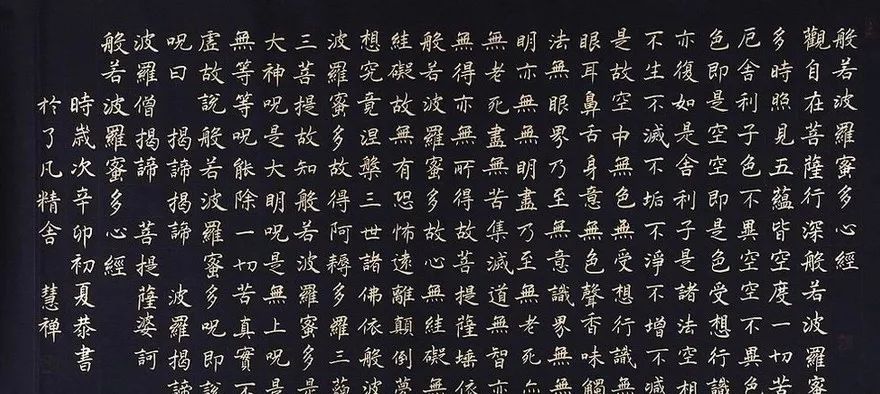 般若波羅蜜多心經
觀自在菩薩行深般若波羅蜜
多時照見五蘊皆空度一切苦
厄舍利子色不異空空不異色
色即是空空即是色受想行識
亦復如是舍利子是諸法空相
不生不滅不垢不淨不增不減
是故空中無色無受想行識無
眼耳鼻舌身意無色聲香味觸
法無眼界乃至無意識界無無
明亦無無明盡乃至無老死亦
無老死盡無苦集滅道無智亦
無得亦無所得故菩提薩埵依
般若波羅蜜多故心無絓礙無
絓礙故無有恐怖遠離顛倒夢
想究竟涅槃三世諸佛依般波
波羅蜜多故得阿耨多羅三藐
三菩提故知般若波羅蜜多是
大神呪是大明呪是無上呪是
無等等呪能除一切苦真實不
虛故說般若波羅蜜多呪即說
呪曰 揭諦揭諦 波羅揭諦
波羅僧揭諦 菩提薩婆訶
般若波羅蜜多心經
時歲次辛卯初夏恭書
於了凡精舍 慧禪